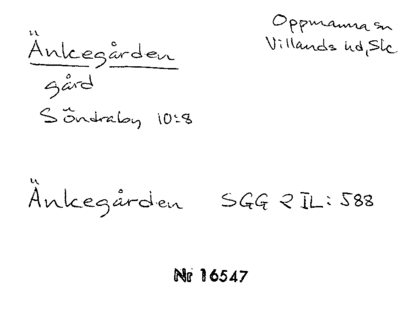 Änkegården
Oppmanna sn
Villands hd, Skc
gård
Söndraby 10:8
Änkegården SGG 2 IL: 588
Nr 16547